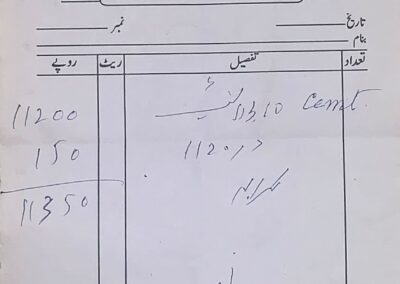 تاریخ نمبر
بنام
تعداد تفصیل ریٹ روپے
Cemt. 10 11200
1120 در 150
کرایہ
11350